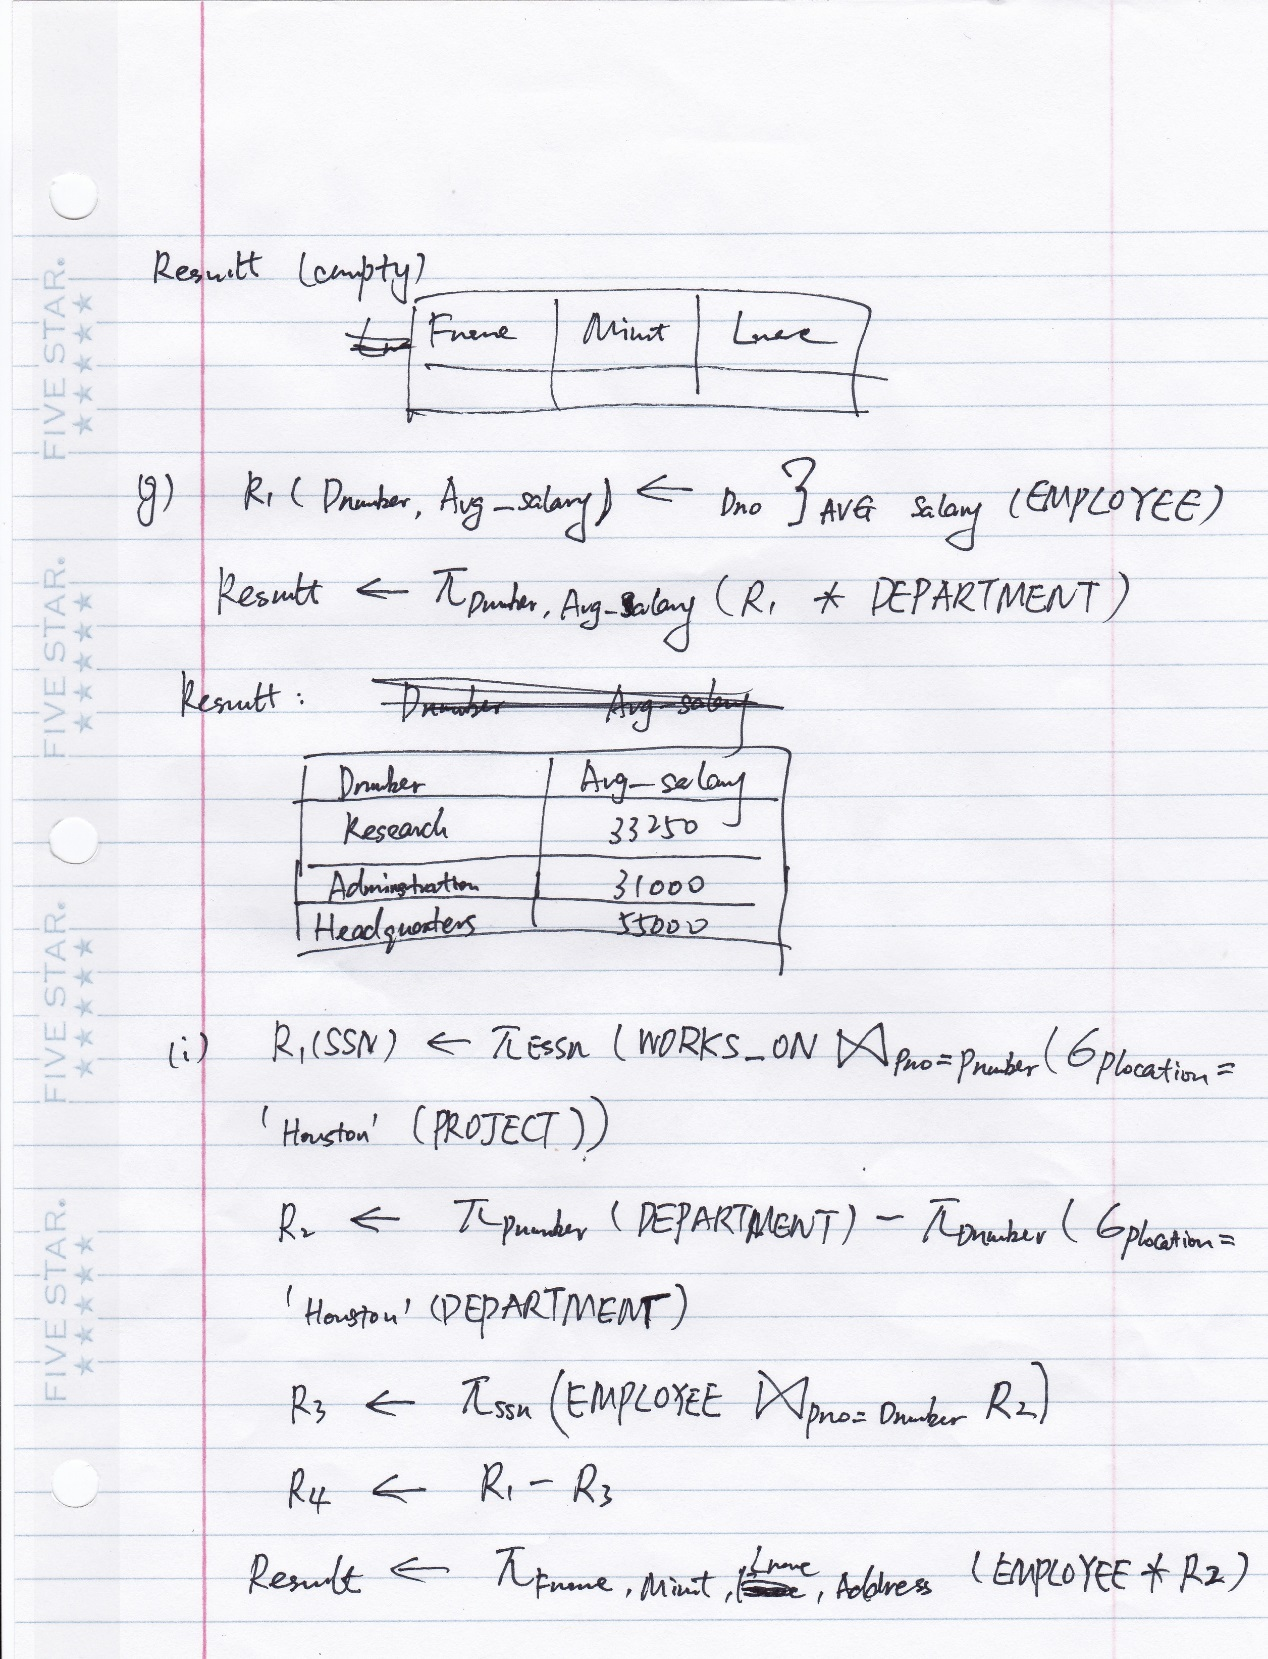 Result (empty)
Fname Minit Lname
(g) R1 ( Dnumber, Avg_salary) ← Dno ℱ AVG salary (EMPLOYEE)
Result ← π Dnumber, Avg_salary (R1 * DEPARTMENT)
Result : Dnumber Avg_salary
Dnumber Avg_salary
Research 33250
Administration 31000
Headquarters 55000
(i) R1(SSN) ← π Essn (WORKS_ON ⋈ Pno=Pnumber (σ Plocation=
'Houston' (PROJECT))
R2 ← π Dnumber (DEPARTMENT) − π Dnumber (σ Plocation=
'Houston' (DEPARTMENT)
R3 ← π ssn (EMPLOYEE ⋈ Dno= Dnumber R2)
R4 ← R1 − R3
Result ← π Fname, Minit, Lname, Address (EMPLOYEE * R2)
FIVE STAR.
FIVE STAR.
FIVE STAR.
FIVE STAR.